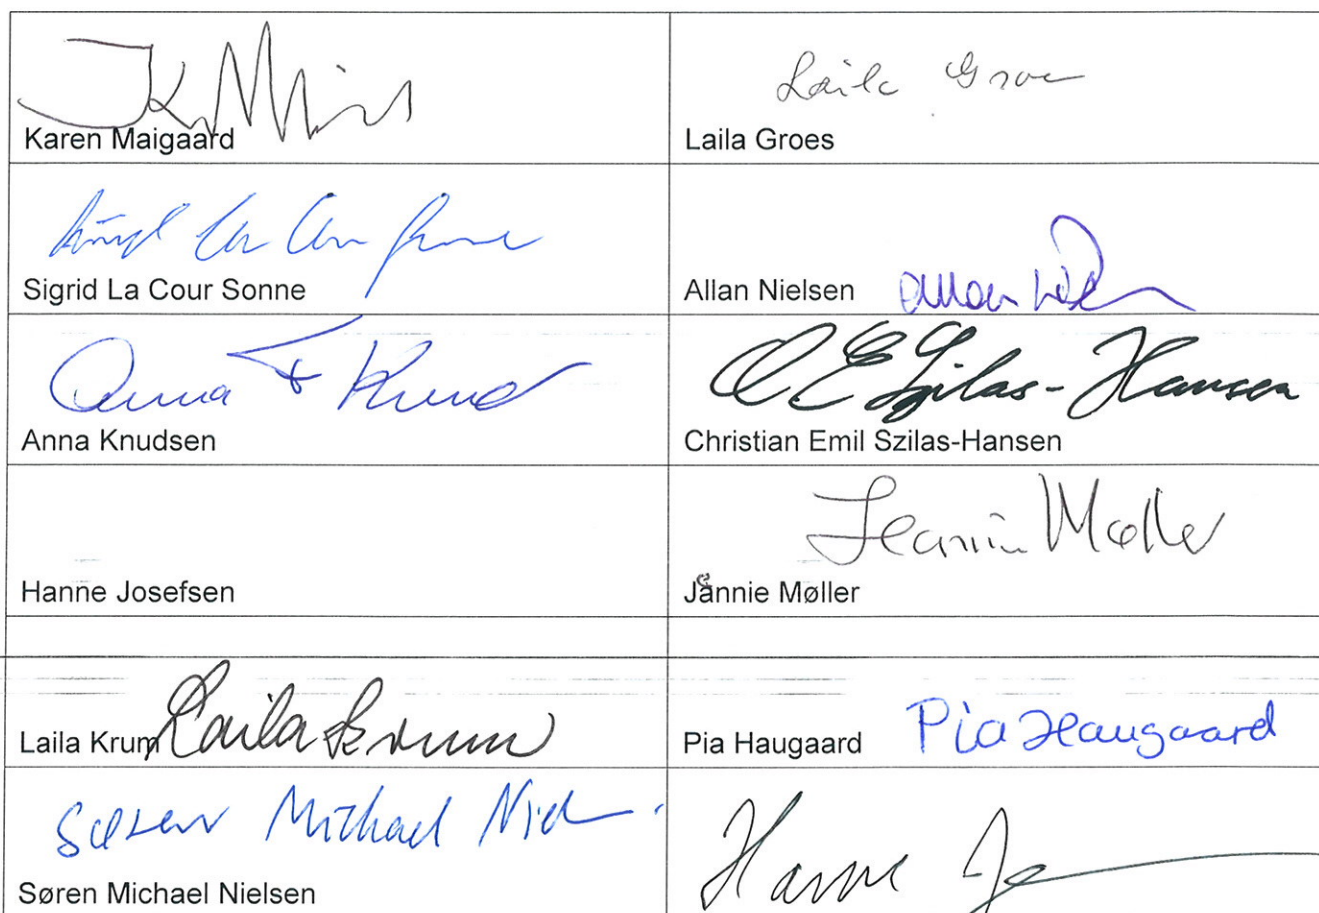 Karen Maigaard
Laila Groes
Laila Groes
Sigrid La Cour Sonne
Allan Nielsen
Allan
Anna F Knud
Anna Knudsen
C E Szilas-Hansen
Christian Emil Szilas-Hansen
Hanne Josefsen
Jeannie Møller
Jeannie Møller
Laila Krum Laila Krum
Pia Haugaard Pia Haugaard
Søren Michael Niel
Søren Michael Nielsen
Hanne